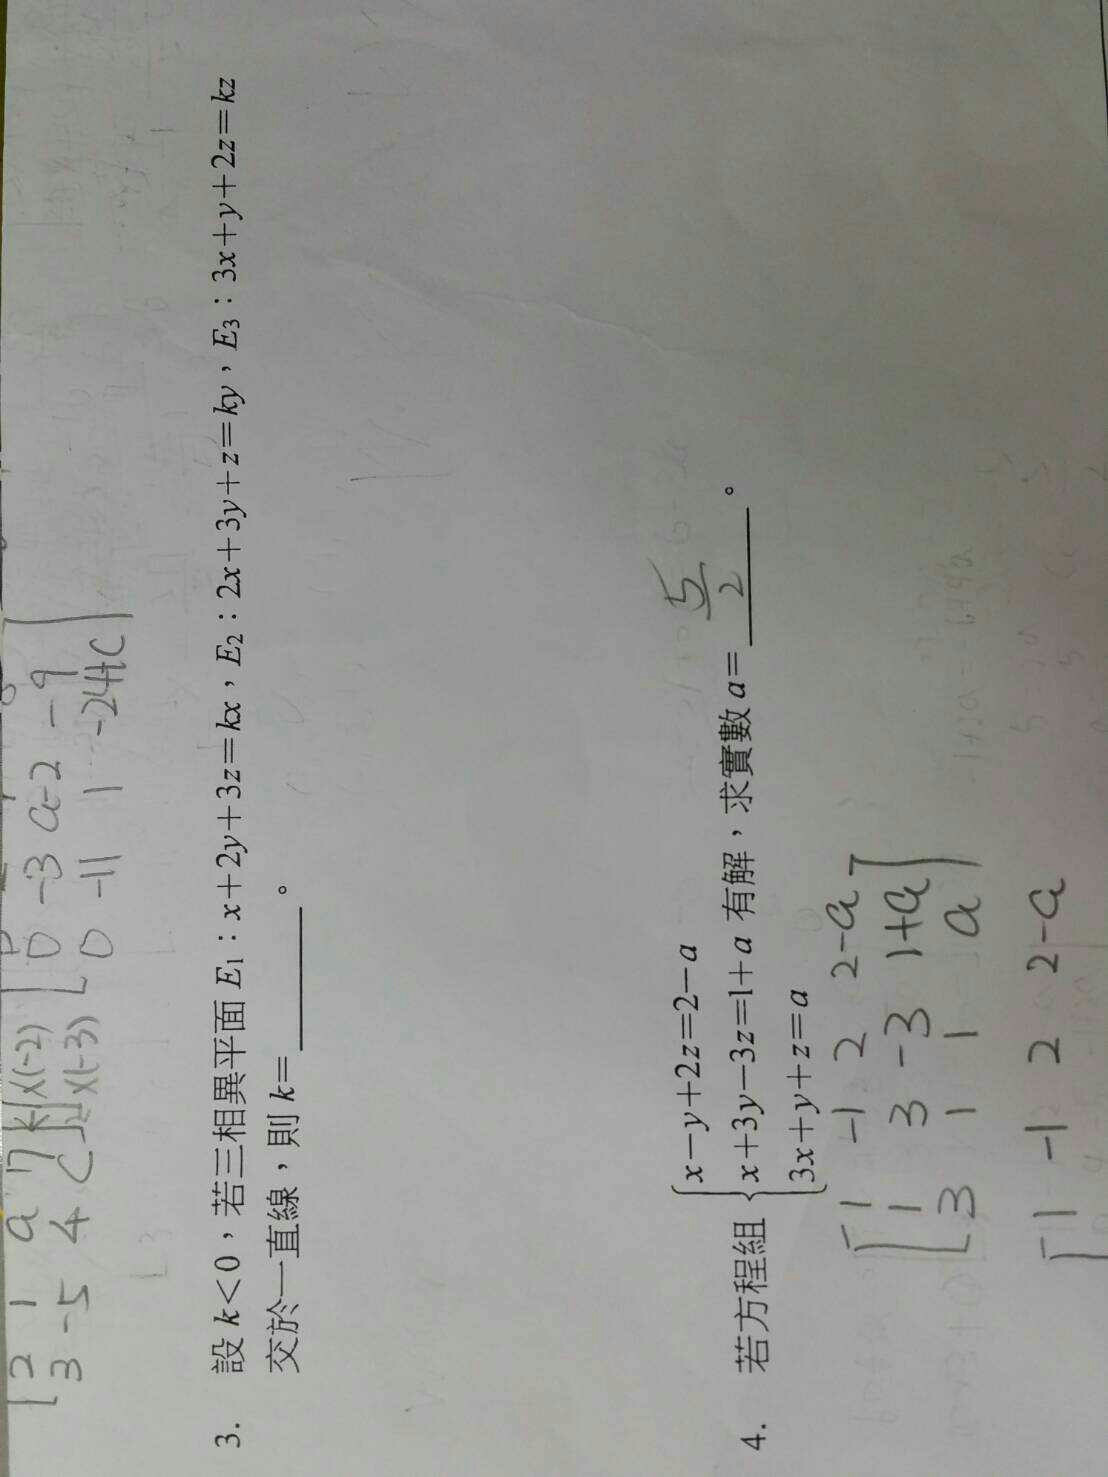 [2 1 a 7 k] ×(-2) [0 -3 a-2 -9]
3 -5 4 c ×(-3) 0 -11 1 -24+c
3. 設 k<0，若三相異平面 E₁：x+2y+3z=kx，E₂：2x+3y+z=ky，E₃：3x+y+2z=kz
交於一直線，則 k=______。
x-y+2z=2-a
4. 若方程組 x+3y-3z=1+a 有解，求實數 a= 5/2 。
3x+y+z=a
1 -1 2 2-a
1 3 -3 1+a
3 1 1 a
1 -1 2 2-a